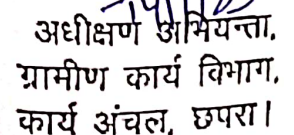 अधीक्षण अभियन्ता,
ग्रामीण कार्य विभाग,
कार्य अंचल, छपरा।